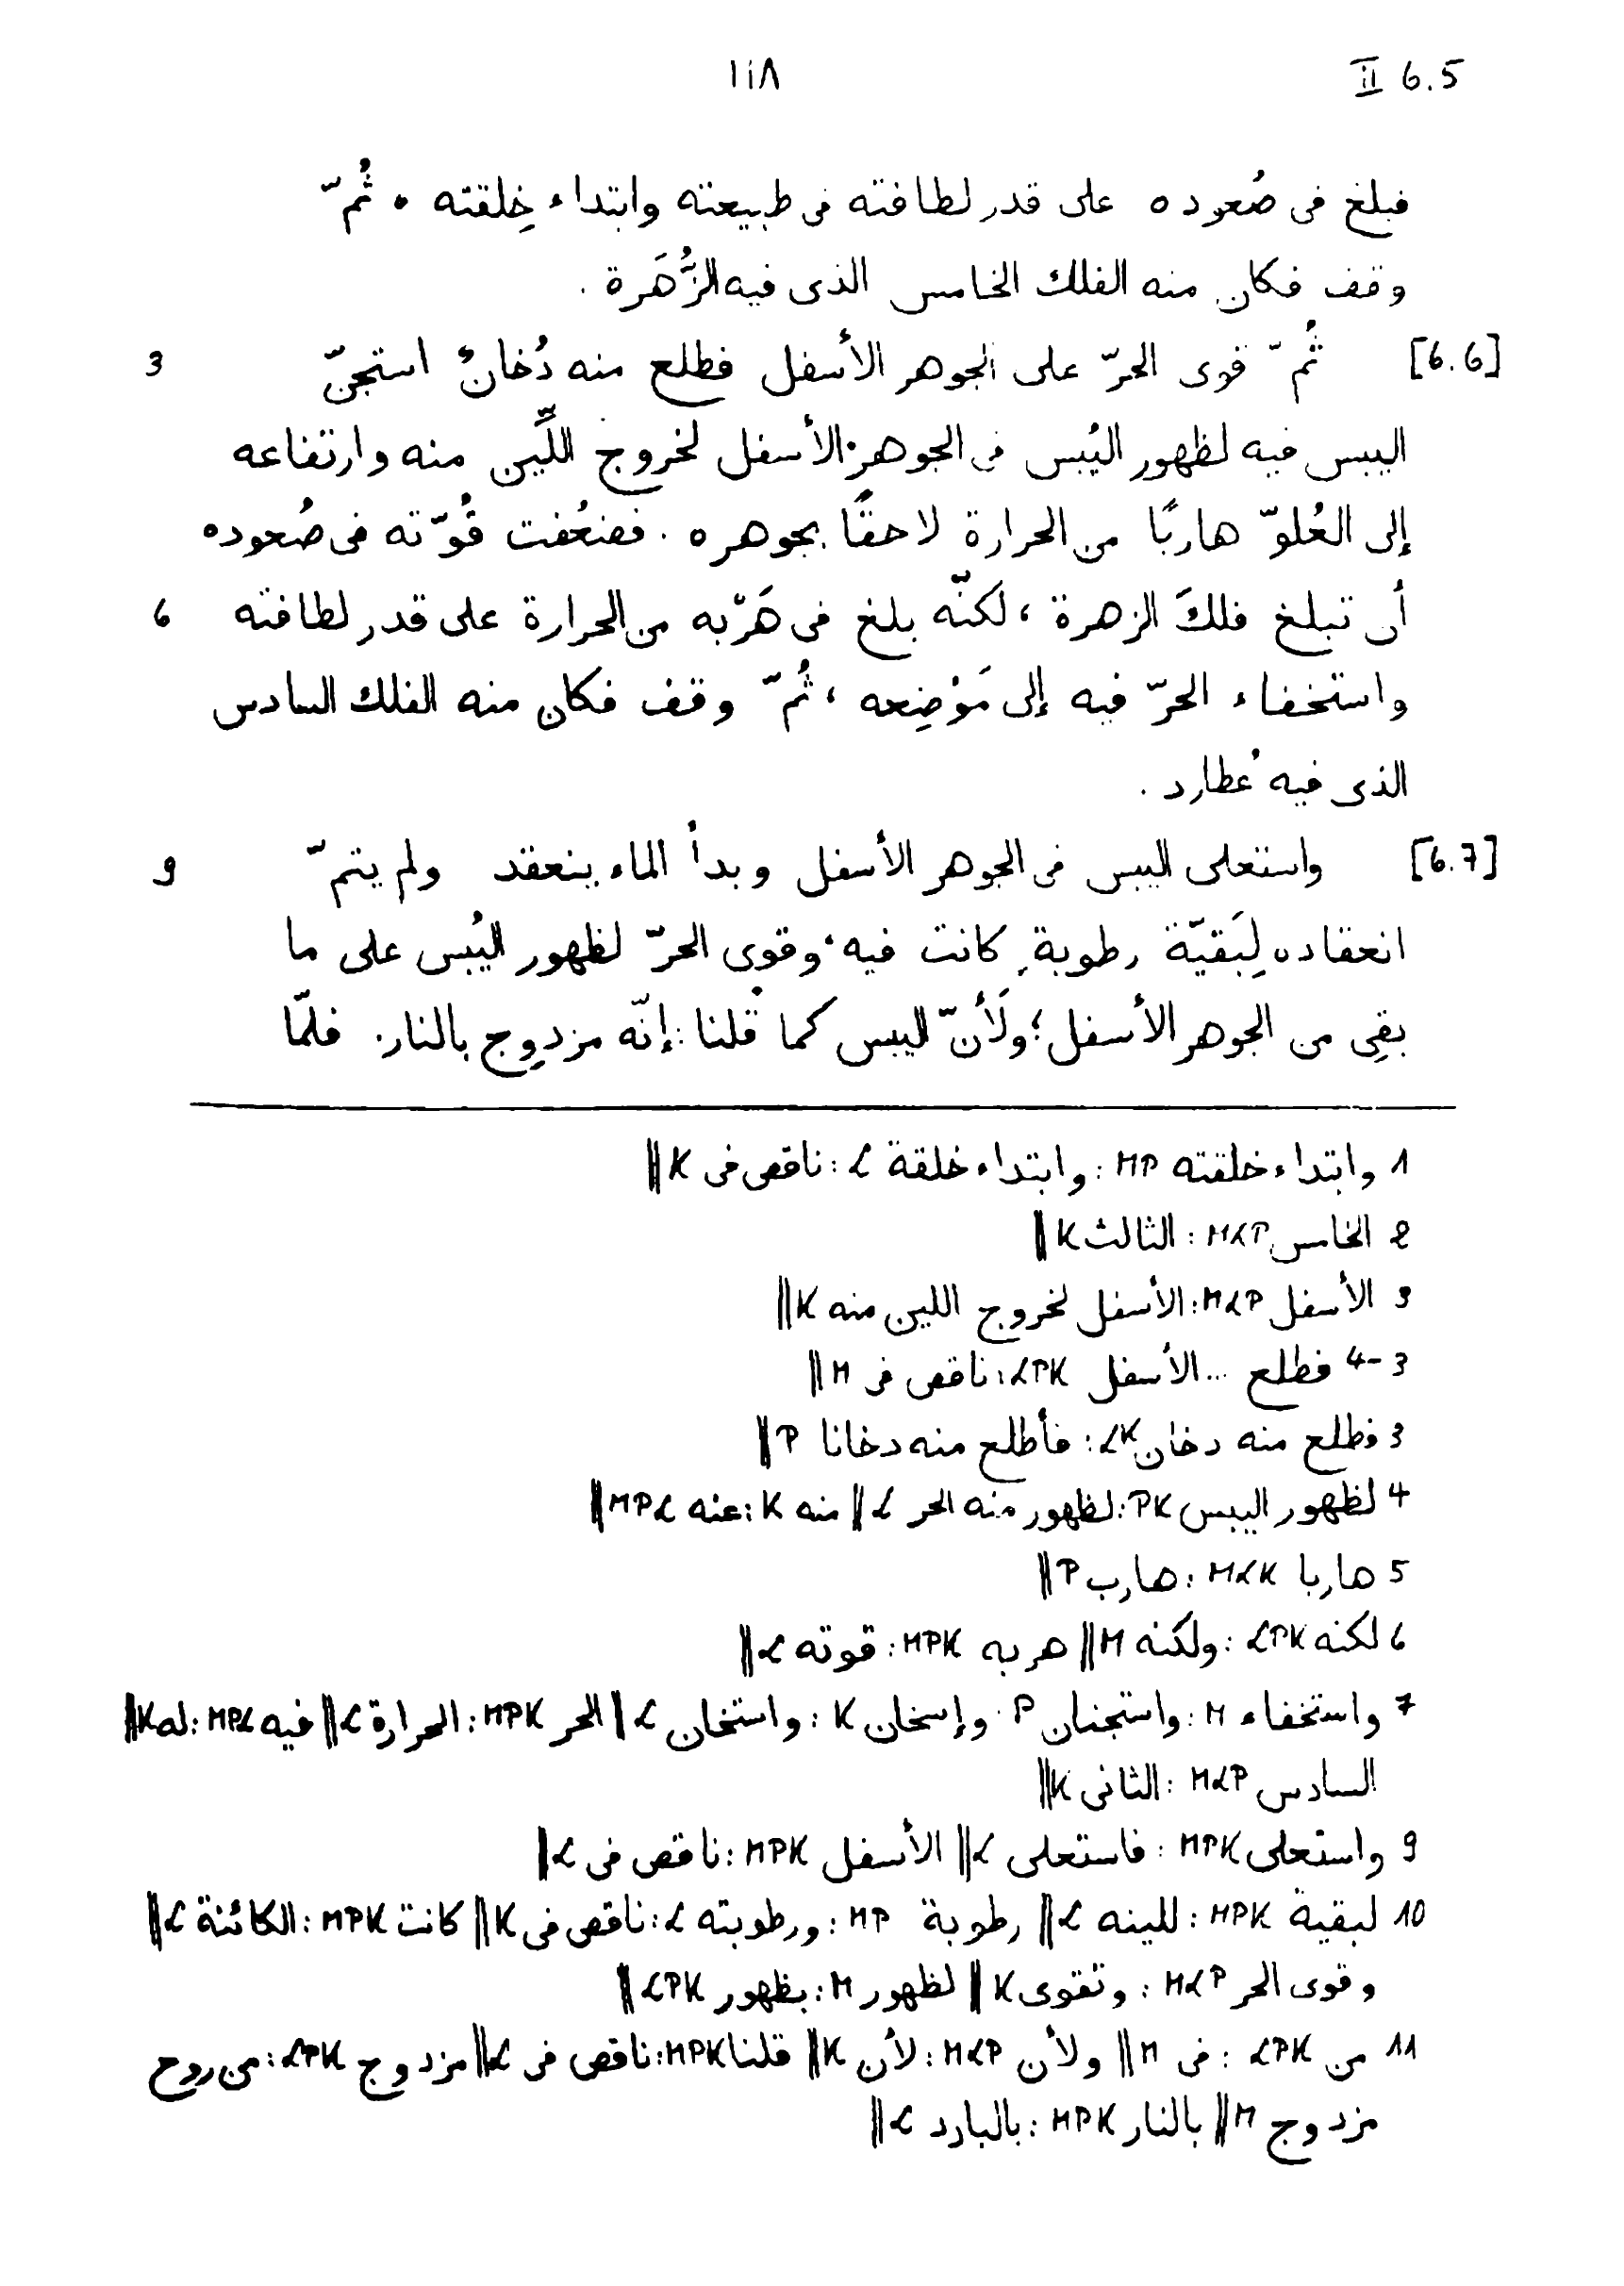 II 6.5 ١١٨
فبلغ فى صُعوده على قدر لطافته فى طبيعته وابتداء خِلقته . ثُمّ
وقف فكان منه الفلك الخامس الذى فيه الزُّهَرة .
[6.6] ثُمّ قوى الحرّ على الجوهر الأسفل فطلع منه دُخانٌ استجنّ 3
اليبس فيه لظهور اليُبس فى الجوهر الأسفل لخروج اللِّين منه وارتفاعه
إلى العُلوّ هاربًا من الحرارة لاحقًا بجوهره . فضعُفت قُوّته فى صُعوده
أن تبلغ فلكَ الزهرة ، لكنّه بلغ فى هَرْبه من الحرارة على قدر لطافته 6
واستخفاء الحرّ فيه إلى مَوْضِعه ، ثُمّ وقف فكان منه الفلك السادس
الذى فيه عُطارد .
[6.7] واستعلى اليبس فى الجوهر الأسفل وبدأ الماء ينعقد ولم يتمّ 9
انعقاده لِبَقيّة رطوبةٍ كانت فيه ، وقوى الحرّ لظهور اليُبس على ما
بقِى من الجوهر الأسفل ؛ ولَأنّ اليبس كما قُلنا : إنّه مزدوِج بالنار . فلمّا
1 وابتداء خلقته MP : وابتداء خلقة L : ناقص فى K ||
2 الخامس MLP : الثالث K ||
3 الأسفل MLP : الأسفل لخروج اللين منه K ||
3-4 فطلع ... الأسفل LPK : ناقص فى M ||
3 فطلع منه دخان LK : فأطلع منه دخانا P ||
4 لظهور اليبس PK : لظهور منه الحر L || منه K : عنه MPL ||
5 هاربا MLK : هارب P ||
6 لكنه LPK : ولكنه M || هربه MPK : قوته L ||
7 واستخفاء M : واستجنان P : وإسخان K : واستخان L || الحر MPK : الحرارة L || فيه MPL : له K ||
السادس MLP : الثانى K ||
9 واستعلى MPK : فاستعلى L || الأسفل MPK : ناقص فى L ||
10 لبقية MPK : للينه L || رطوبة MP : ورطوبته L : ناقص فى K || كانت MPK : الكائنة L ||
وقوى الحر MLP : وتقوى K || لظهور M : بظهور LPK ||
11 من LPK : فى M || ولأن MLP : لأن K || قلنا MPK : ناقص فى L || مزدوج LPK : من روح
مزدوج M || بالنار MPK : بالبارد L ||